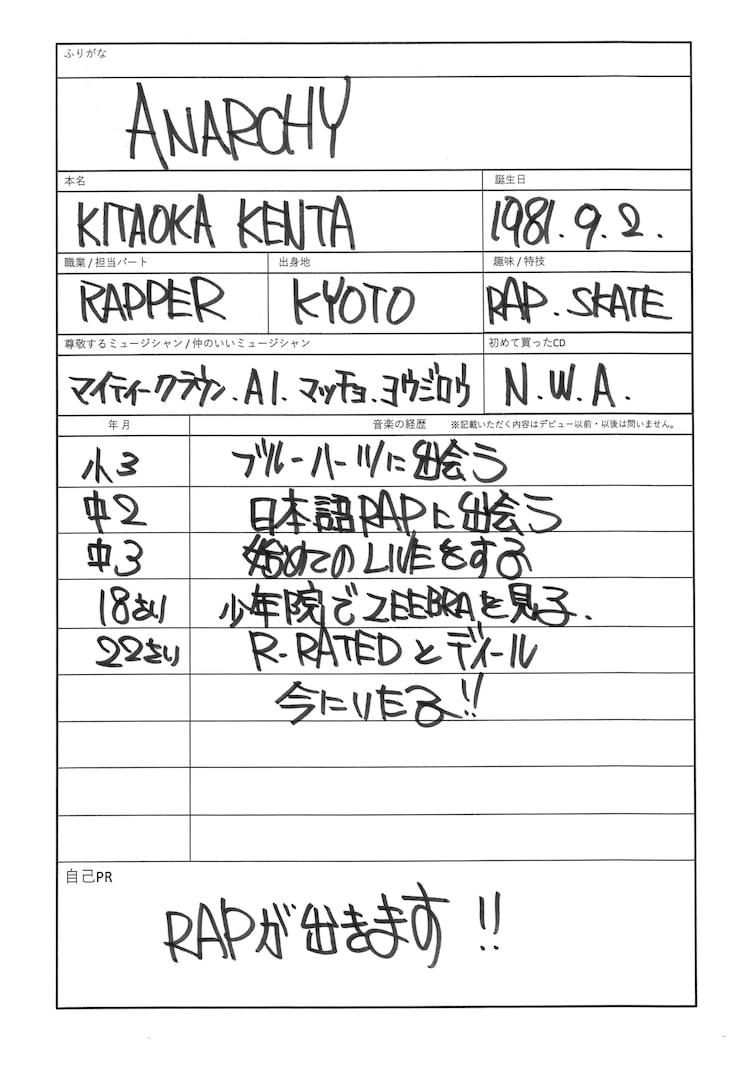 ふりがな
ANARCHY
本名
誕生日
KITAOKA KENTA
1981.9.2.
職業 / 担当パート
出身地
趣味 / 特技
RAPPER
KYOTO
RAP.SKATE
尊敬するミュージシャン / 仲のいいミュージシャン
初めて買ったCD
マイティークラウン.AI.マッチョ.ヨウジロウ
N.W.A.
年 月
音楽の経歴 ※記載いただく内容はデビュー以前・以後は問いません。
小3 ブルーハーツに出会う
中2 日本語RAPに出会う
中3 始めてのLIVEをする
18さい 少年院でZEEBRAを見る.
22さい R-RATEDとディール
今にいたる!!
自己PR
RAPが出きます!!